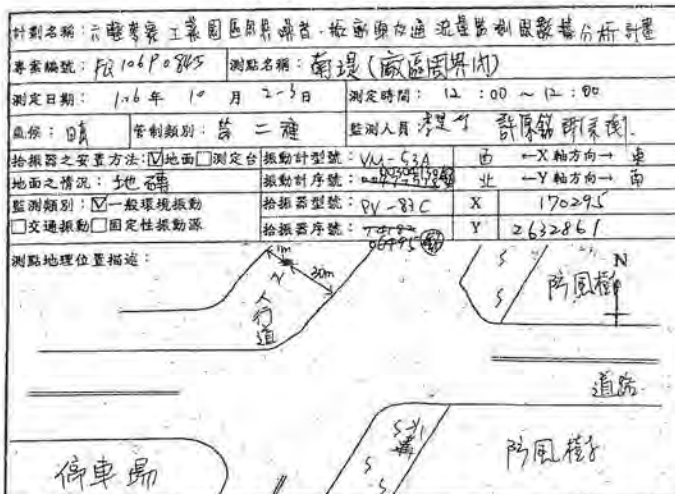 計劃名稱：六輕麥寮工業園區周界噪音、振動與交通流量監測與數據分析計畫
專案編號：FB106P0845 測點名稱：南堤(廠區周界內)
測定日期：106年10月2-3日 測定時間：12:00～12:00
氣候：晴 管制類別：第二種 監測人員
拾振器之安置方法：☑地面□測定台 振動計型號：VM-53A 西 ←X軸方向→ 東
地面之情況：地磚 振動計序號： 北 ←Y軸方向→ 南
監測類別：☑一般環境振動 拾振器型號：PV-83C X 170295
□交通振動□固定性振動源 拾振器序號：06495 Y 2632861
測點地理位置描述：
1m
30m
N
防風樹
人行道
道路
防風樹
停車場